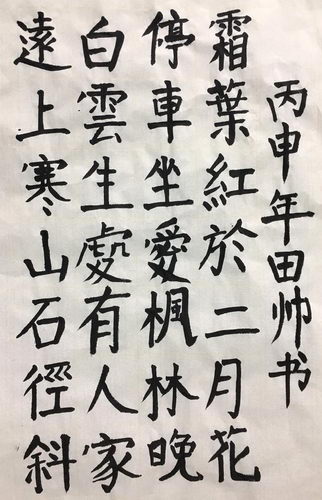 遠上寒山石徑斜
白雲生處有人家
停車坐愛楓林晚
霜葉紅於二月花
丙申年田帅书